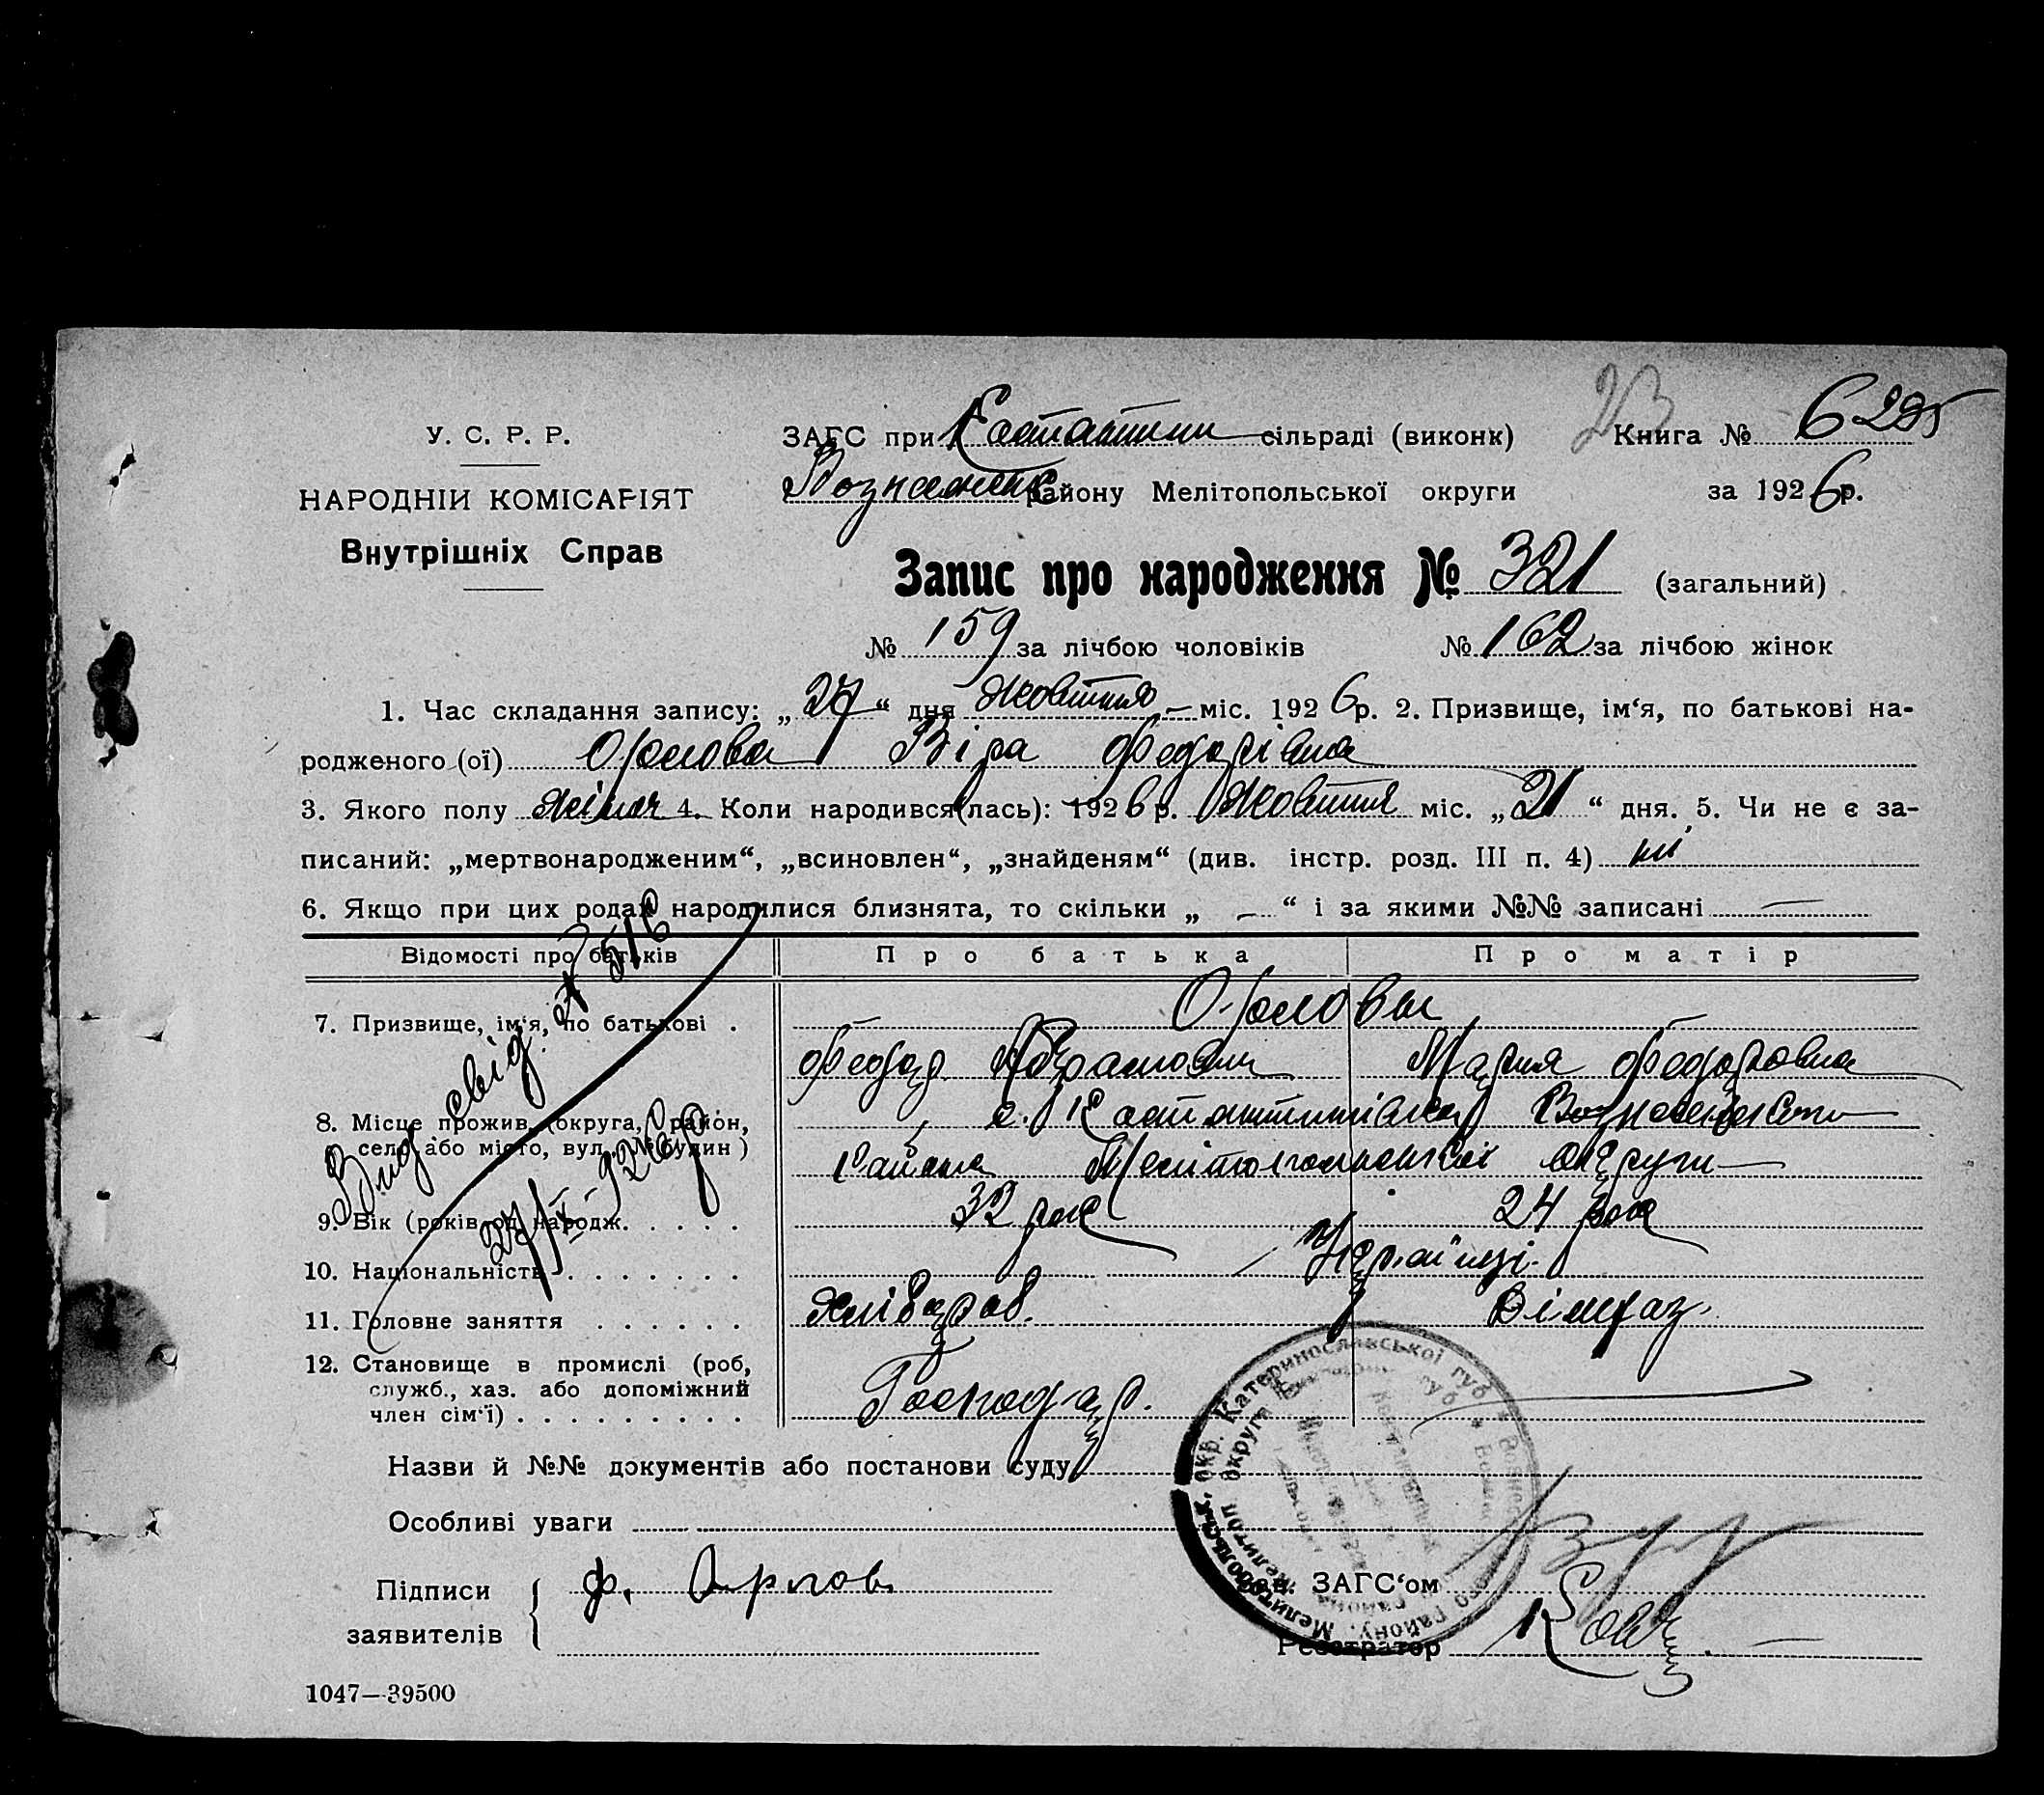 23
У. С. Р. Р. ЗАГС при сільраді (виконк) Книга № 6
НАРОДНІЙ КОМІСАРІЯТ району Мелітопольської округи за 1926 р.
Внутрішніх Справ
Запис про народження № 321 (загальний)
№ 159 за лічбою чоловіків № 162 за лічбою жінок
1. Час складання запису: „27“ дня Жовтня міс. 1926 р. 2. Призвище, ім‘я, по батькові на-
родженого (ої) Орлова Віра Федорівна
3. Якого полу жіноч 4. Коли народився(лась): 1926 р. Жовтня міс. „21“ дня. 5. Чи не є за-
писаний: „мертвонародженим“, „всиновлен“, „знайденям“ (див. інстр. розд. III п. 4) ні
6. Якщо при цих родах народилися близнята, то скільки „ — “ і за якими №№ записані —
Відомості про батьків Про батька Про матір
7. Призвище, ім‘я, по батькові . Орлови
Федор Абрамович Мария Федоровна
8. Місце прожив. (округа, район, с. Костянтинівка
село або місто, вул., № будин) района Мелітопольської округи
9. Вік (років од народж. . . . . 32 рок 24 рок
10. Національність . . . . . . . Українці
11. Головне заняття . . . . . . Хлібороб.
12. Становище в промислі (роб,
служб., хаз. або допоміжний Господар.
член сім‘ї) . . . . . . . . .
Вид свід. № 516
27/X-926 р
Назви й №№ документів або постанови суду
Особливі уваги
Підписи Ф. Орлов Зав. ЗАГС‘ом
заявителів Реєстратор
1047—39500